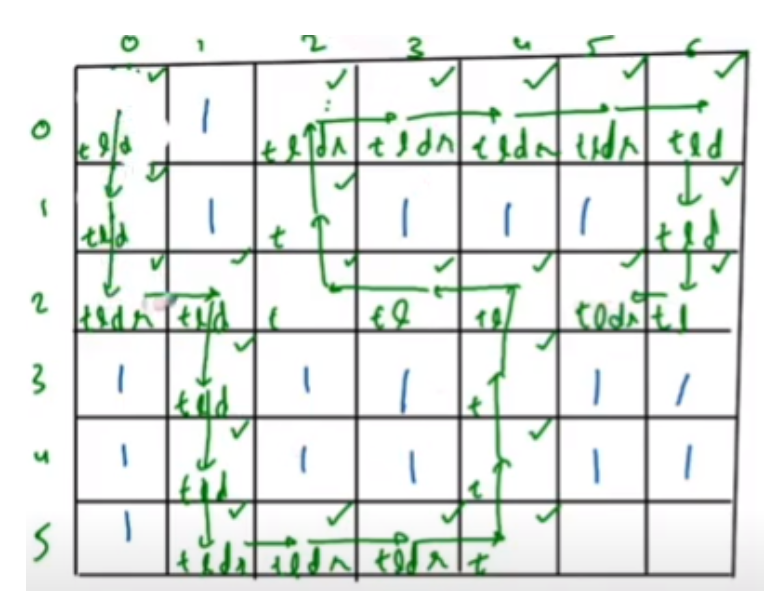 0 1 2 3 4 5 6
0 tld 1 tldr tldr tldr tldr tld
1 tld 1 t 1 1 1 tld
2 tldr tld t tl tl tldr tl
3 1 tld 1 1 t 1 1
4 1 tld 1 1 t 1 1
5 1 tldr tldr tldr t